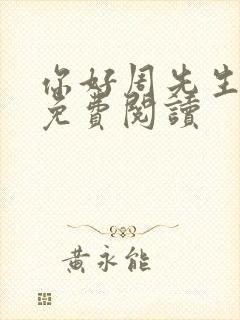 你好周先生
免費閱讀
黃永能